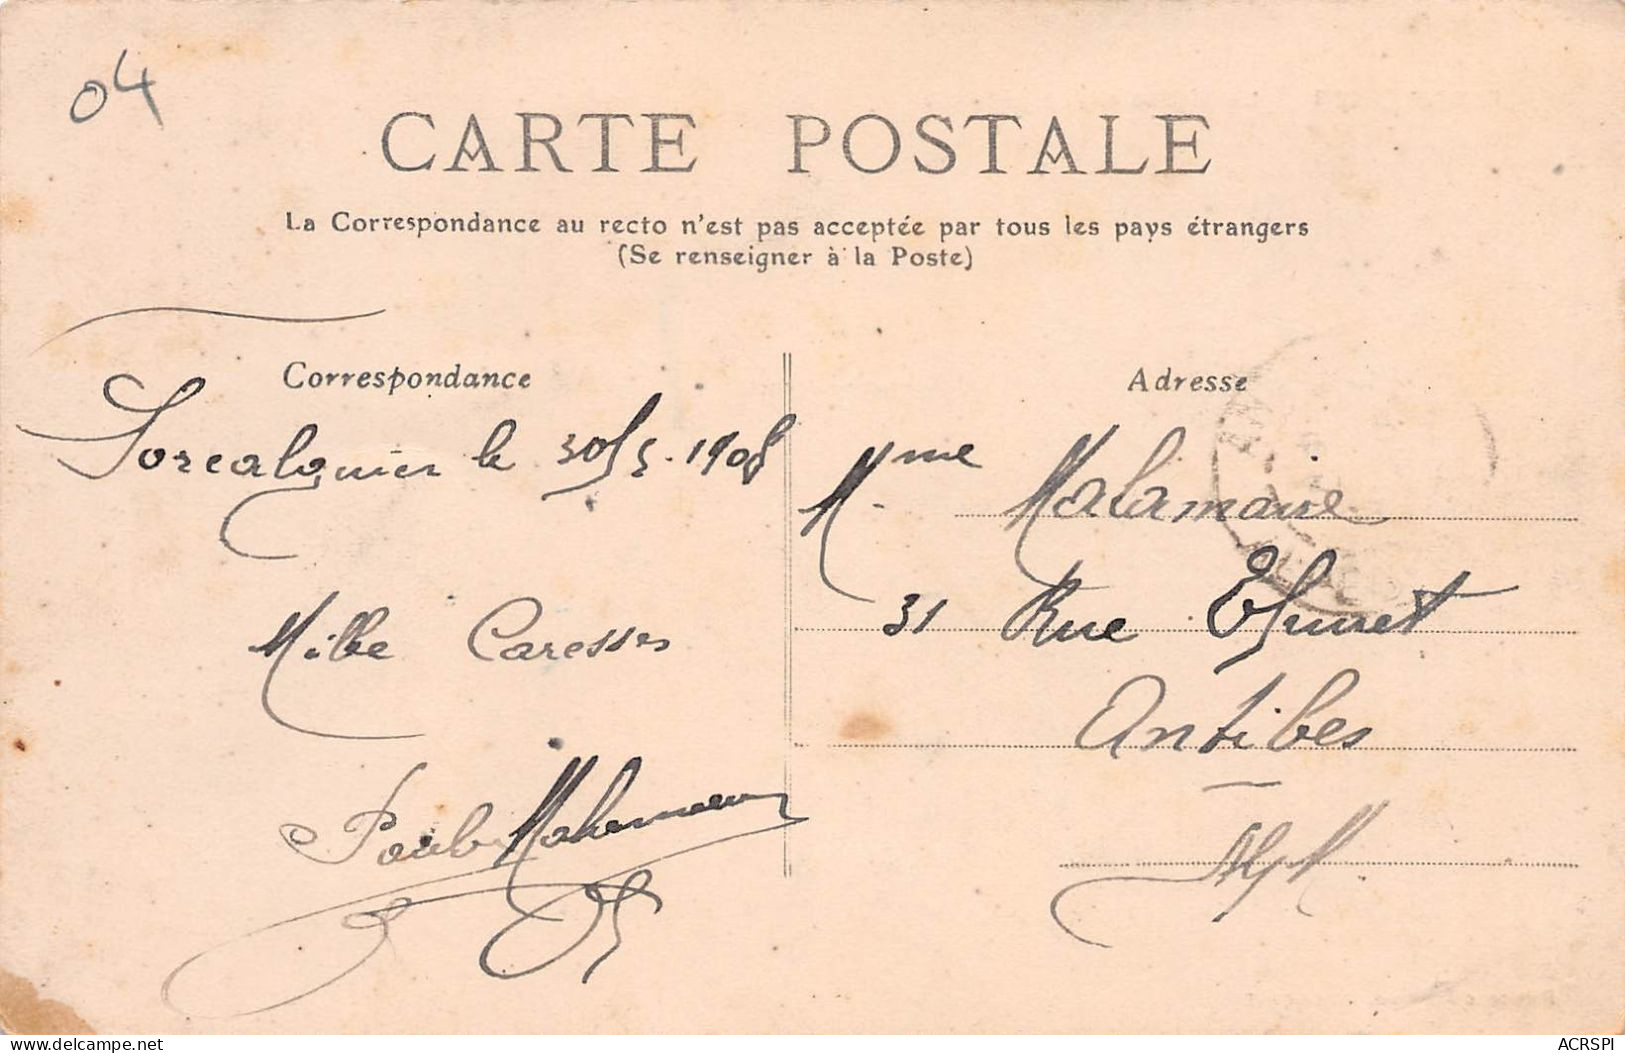 04
CARTE POSTALE
La Correspondance au recto n'est pas acceptée par tous les pays étrangers
(Se renseigner à la Poste)
Correspondance
Forcalquier le 30/5.1908
Mille Caresses
Paul
Adresse
Mme Malamaire
31 Rue
Antibes
delcampe.net
ACRSPI